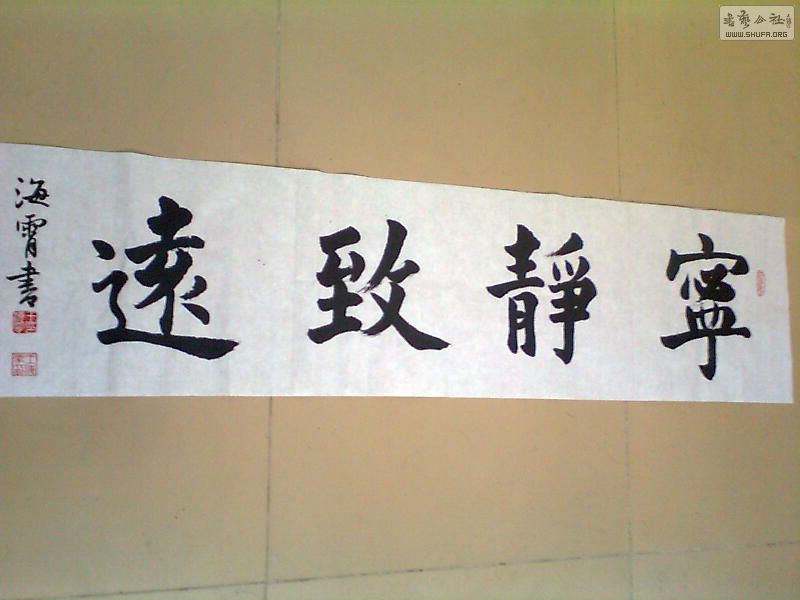 寧靜致遠
海霄書
書藝公社
WWW.SHUFA.ORG